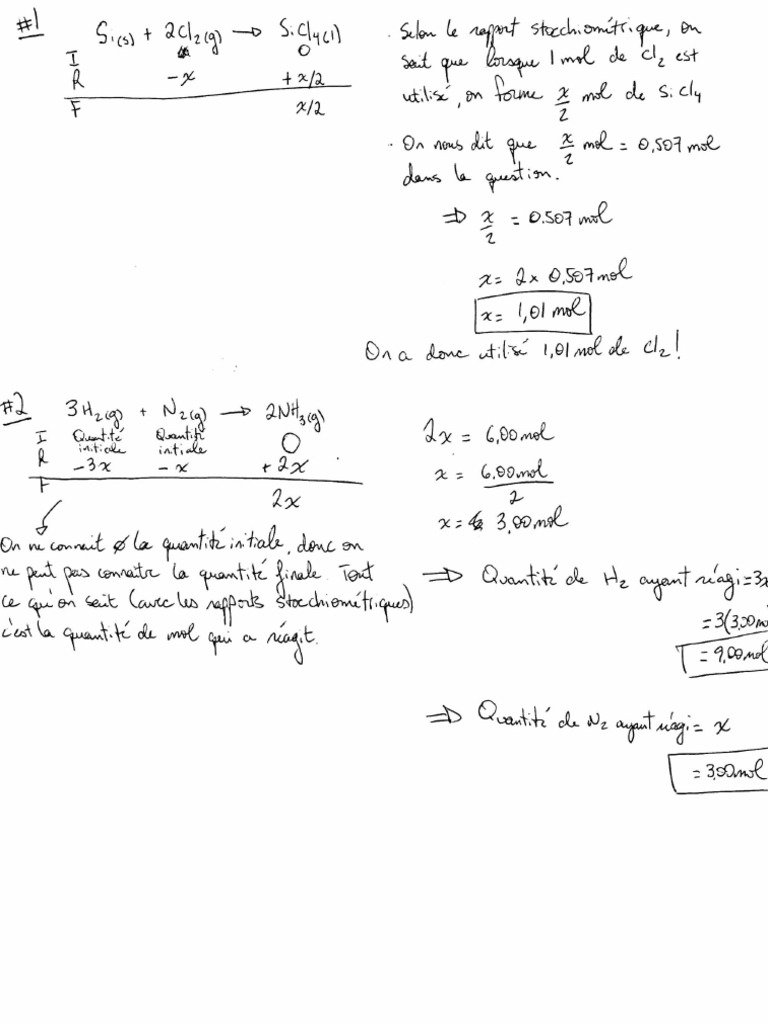 #1
Si(s) + 2Cl2(g) → SiCl4(l)
I 0
R -x +x/2
F x/2
· Selon le rapport stoechiométrique, on
sait que lorsque 1 mol de Cl2 est
utilisé, on forme x/2 mol de SiCl4
· On nous dit que x/2 mol = 0,507 mol
dans la question.
⇒ x/2 = 0.507 mol
x = 2 x 0,507 mol
x = 1,01 mol
On a donc utilisé 1,01 mol de Cl2!
#2
3H2(g) + N2(g) → 2NH3(g)
I Quantité initiale Quantité initiale 0
R -3x -x +2x
F 2x
On ne connait ∅ la quantité initiale, donc on
ne peut pas connaître la quantité finale. Tout
ce qu'on sait (avec les rapports stoechiométriques)
c'est la quantité de mol qui a réagit.
2x = 6,00 mol
x = 6,00 mol / 2
x = 3,00 mol
⇒ Quantité de H2 ayant réagi = 3x
= 3(3,00 mo
= 9,00 mol
⇒ Quantité de N2 ayant réagi = x
= 3,00 mol